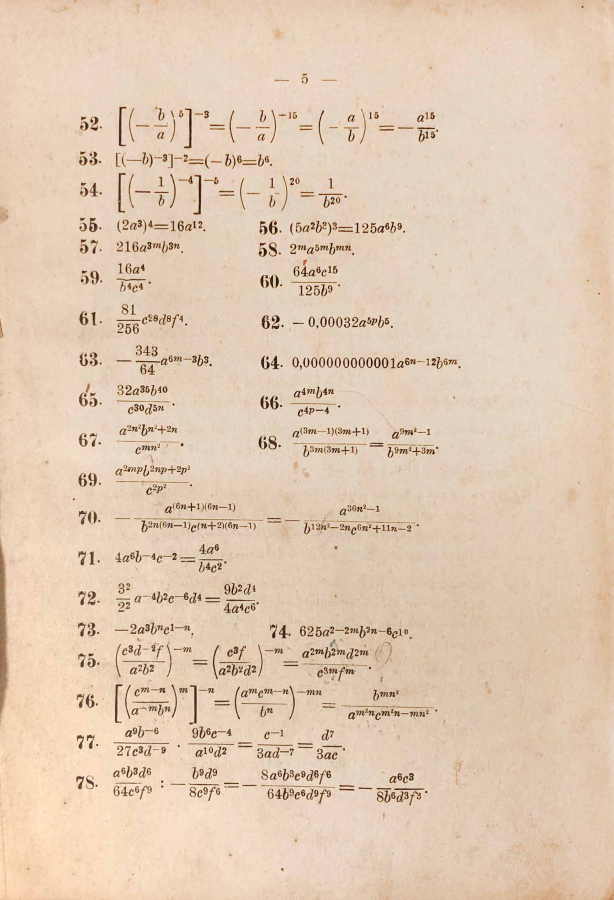 — 5 —
52. [(−b/a)⁵]⁻³=(−b/a)⁻¹⁵=(−a/b)¹⁵=−a¹⁵/b¹⁵.
53. [(−b)⁻³]⁻²=(−b)⁶=b⁶.
54. [(−1/b)⁻⁴]⁻⁵=(−1/b)²⁰=1/b²⁰.
55. (2a³)⁴=16a¹². 56. (5a²b³)³=125a⁶b⁹.
57. 216a³ᵐb³ⁿ. 58. 2ᵐa⁵ᵐbᵐⁿ.
59. 16a⁴/b⁴c⁴. 60. 64a⁶c¹⁵/125b⁹.
61. 81/256 c²⁸d⁸f⁴. 62. −0,00032a⁵ᵖb⁵.
63. −343/64 a⁶ᵐ⁻³b³. 64. 0,000000000001a⁶ⁿ⁻¹²b⁶ᵐ.
65. 32a³⁵b⁴⁰/c³⁰d⁵ⁿ. 66. a⁴ᵐb⁴ⁿ/c⁴ᵖ⁻⁴.
67. a^(2n²)b^(n²+2n)/c^(mn²). 68. a^((3m−1)(3m+1))/b^(3m(3m+1))=a^(9m²−1)/b^(9m²+3m).
69. a^(2mp)b^(2np+2p²)/c^(2p²).
70. −a^((6n+1)(6n−1))/b^(2n(6n−1))c^((n+2)(6n−1))=−a^(36n²−1)/b^(12n²−2n)c^(6n²+11n−2).
71. 4a⁶b⁻⁴c⁻²=4a⁶/b⁴c².
72. 3²/2² a⁻⁴b²c⁻⁶d⁴=9b²d⁴/4a⁴c⁶.
73. −2a³bⁿc¹⁻ⁿ. 74. 625a²⁻²ᵐb²ⁿ⁻⁶c¹⁰.
75. (c³d⁻²f/a²b²)⁻ᵐ=(c³f/a²b²d²)⁻ᵐ=a²ᵐb²ᵐd²ᵐ/c³ᵐfᵐ.
76. [(cᵐ⁻ⁿ/a⁻ᵐbⁿ)ᵐ]⁻ⁿ=(aᵐcᵐ⁻ⁿ/bⁿ)⁻ᵐⁿ=b^(mn²)/a^(m²n)c^(m²n−mn²).
77. a⁹b⁻⁶/27c³d⁻⁹ · 9b⁶c⁻⁴/a¹⁰d²=c⁻¹/3ad⁻⁷=d⁷/3ac.
78. a⁶b³d⁶/64c⁶f⁹ : −b⁹d⁹/8c⁹f⁶=−8a⁶b³c⁹d⁶f⁶/64b⁹c⁶d⁹f⁹=−a⁶c³/8b⁶d³f³.